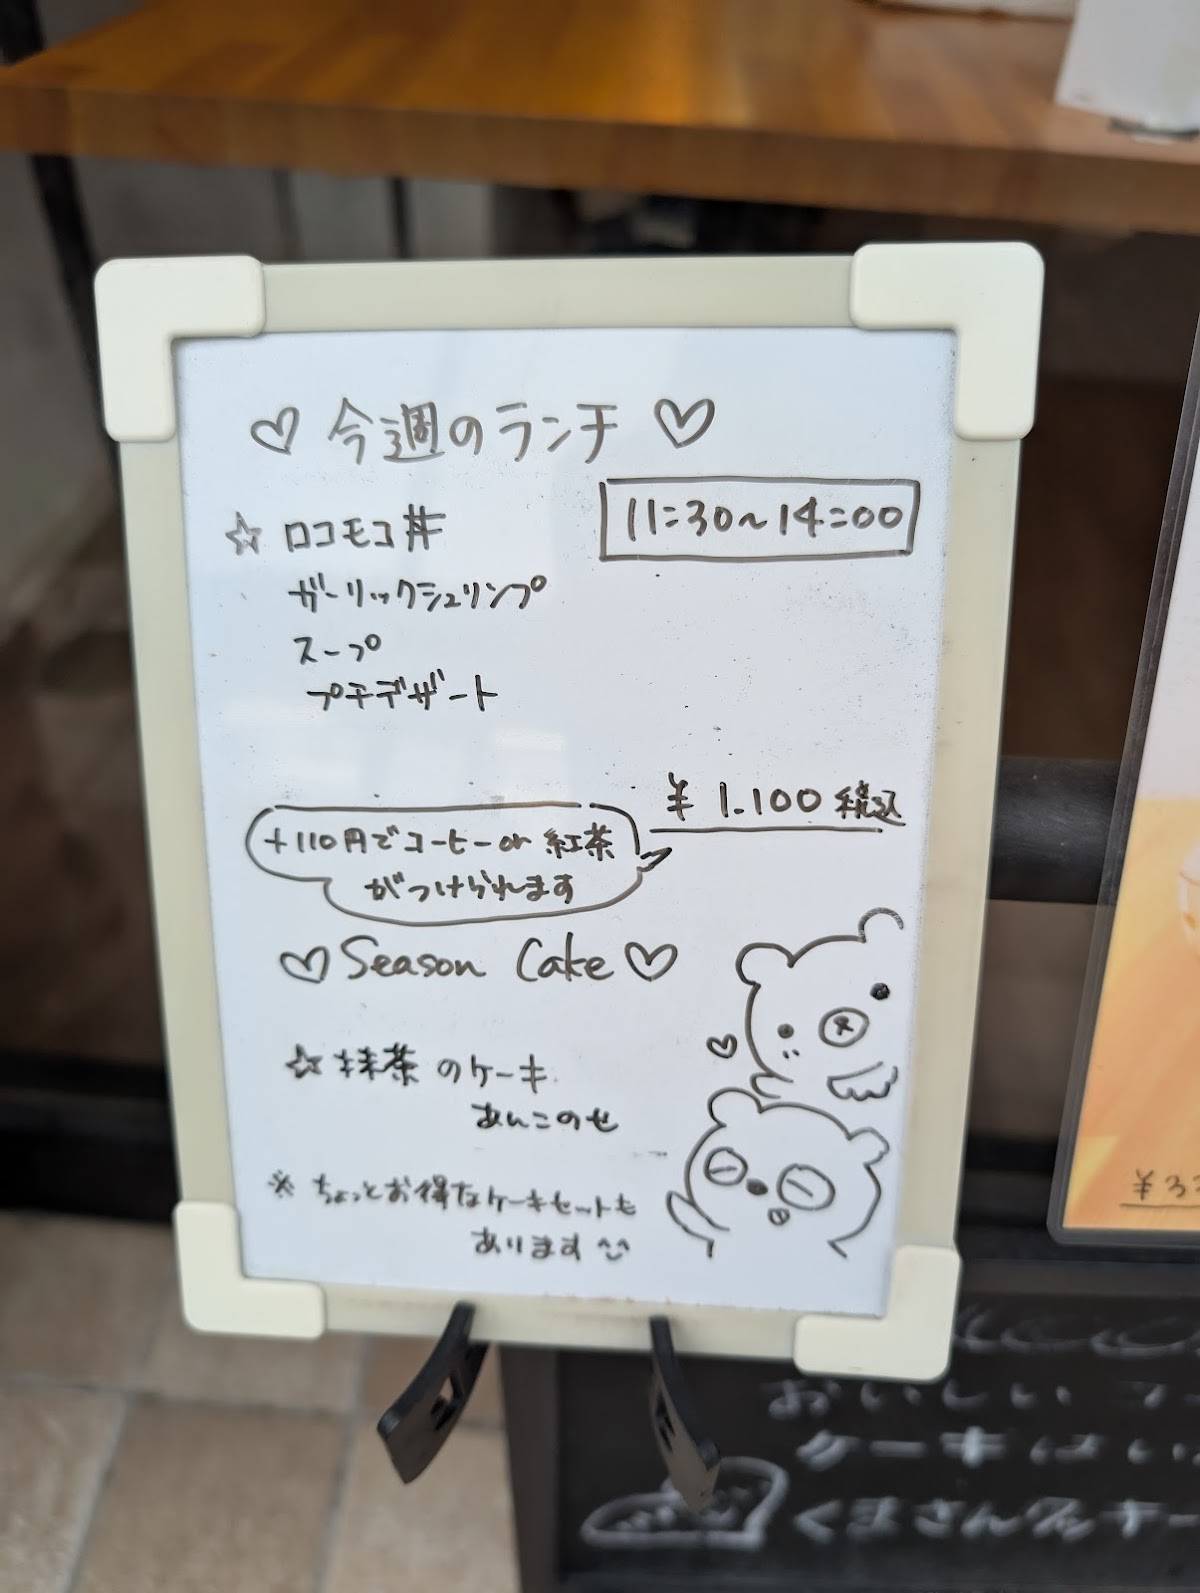 ♡ 今週のランチ ♡
11:30〜14:00
☆ ロコモコ丼
ガーリックシュリンプ
スープ
プチデザート
¥ 1.100 税込
+110円でコーヒーor 紅茶
がつけられます
♡ Season Cake ♡
☆ 抹茶のケーキ
あんこのせ
※ ちょっとお得なケーキセットも
あります
¥33
おいしい
ケーキはい
くまさんクッキー